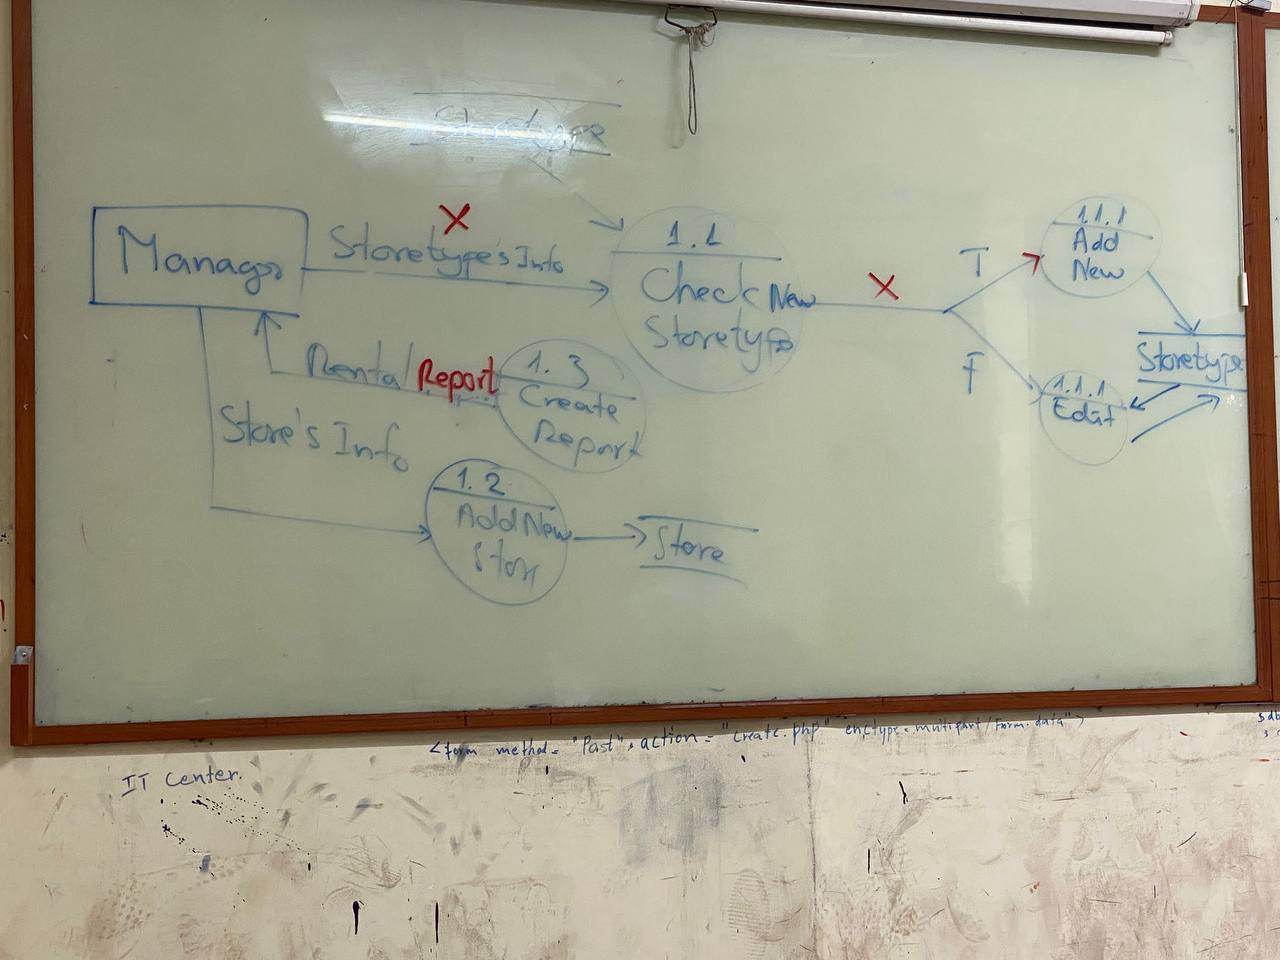 Storetype
Manager
X
Storetype's Info
1.1
Check New
Storetype
X
T
F
1.1.1
Add
New
Storetype
1.1.1
Edit
Rental Report
1.3
Create
Report
Store's Info
1.2
Add New
Stor
Store
<form method= "Post", action= "create.php" enctype=multipart/form.data">
IT Center.